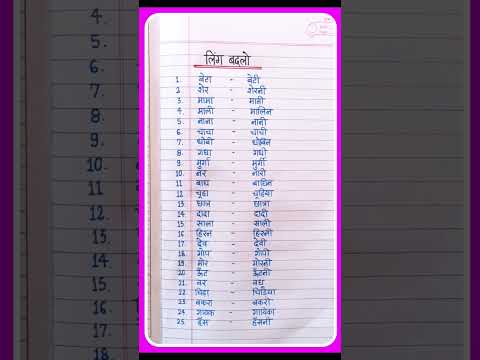 लिंग बदलो
1. बेटा - बेटी
2. शेर - शेरनी
3. मामा - मामी
4. माली - मालिन
5. नाना - नानी
6. चाचा - चाची
7. धोबी - धोबिन
8. गधा - गधी
9. मुर्गा - मुर्गी
10. नर - नारी
11. बाघ - बाघिन
12. चूहा - चुहिया
13. छात्र - छात्रा
14. दादा - दादी
15. साला - साली
16. हिरन - हिरनी
17. देव - देवी
18. गोप - गोपी
19. मोर - मोरनी
20. ऊँट - ऊँटनी
21. वर - वधू
22. चिड़ा - चिड़िया
23. बकरा - बकरी
24. गायक - गायिका
25. हँस - हँसनी
4.
5.
6.
7.
8.
9.
10.
11.
12.
13.
14.
15.
16.
17.
18.